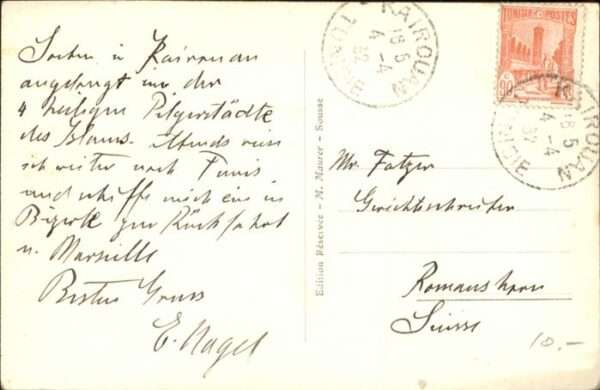 Soeben in Kairouan
angelangt einer der
4 heiligen Pilgerstädte
des Islams. Abends reise
ich weiter nach Tunis
und schiffe mich ein in
Bizerte zur Rückfahrt
n. Marseille
Besten Gruss
E. Nagel
Edition Réservée - M. Maurer - Sousse
KAIROUAN
TUNISIE
18 5
4 -4
32
TUNISIE POSTES
90
KAIROUAN
TUNISIE
18 5
4 -4
32
Mr. Fatzer
Gerichtschreiber
Romanshorn
Suisse
10.-